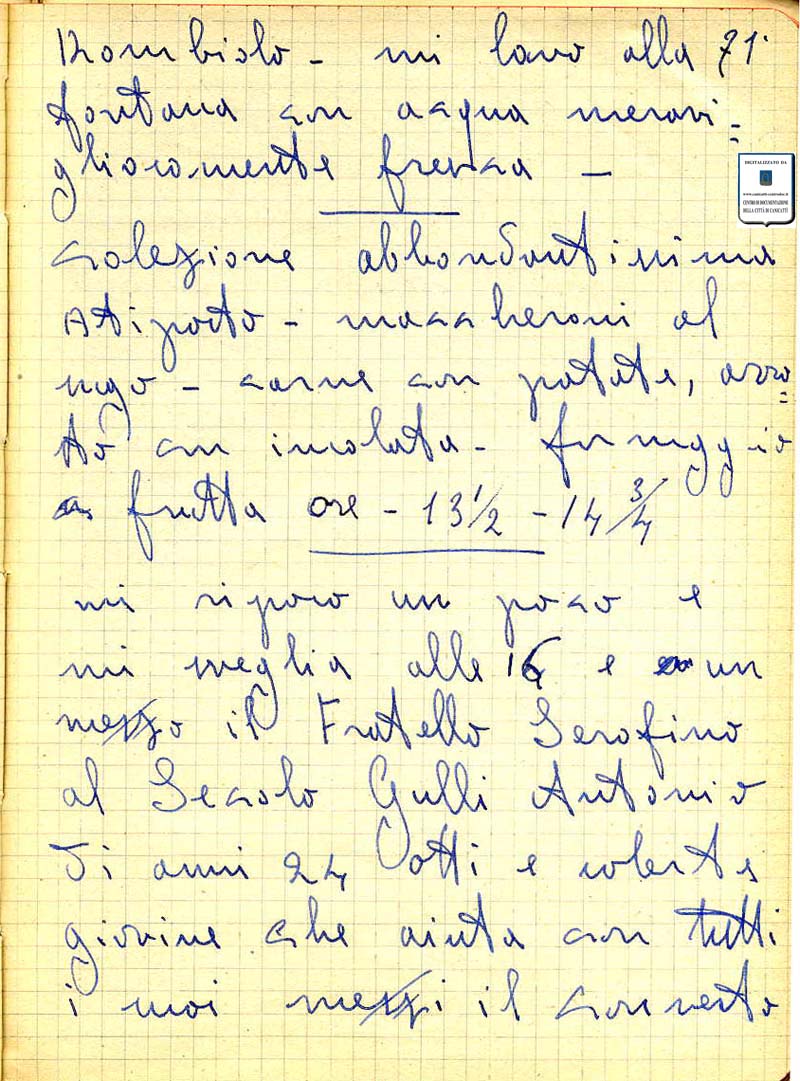 Rombiolo - mi lavo alla 71
fontana con acqua meravi=
gliosamente fresca -
DIGITALIZZATO DA
CENTRO DI DOCUMENTAZIONE
DELLA CITTÀ DI CANICATTÌ
colezione abbondantissima
Atipasto - maccheroni al
sugo - carne con patate, arro=
sto con insalata - formaggio
frutta ore - 13 1/2 - 14 3/4
mi riposo un poco e
mi sveglia alle 16 e un
mezzo il Fratello Serafino
al Secolo Gulli Antonio
di anni 24 e solerte
giovine che aiuta con tutti
i suoi mezzi il convento